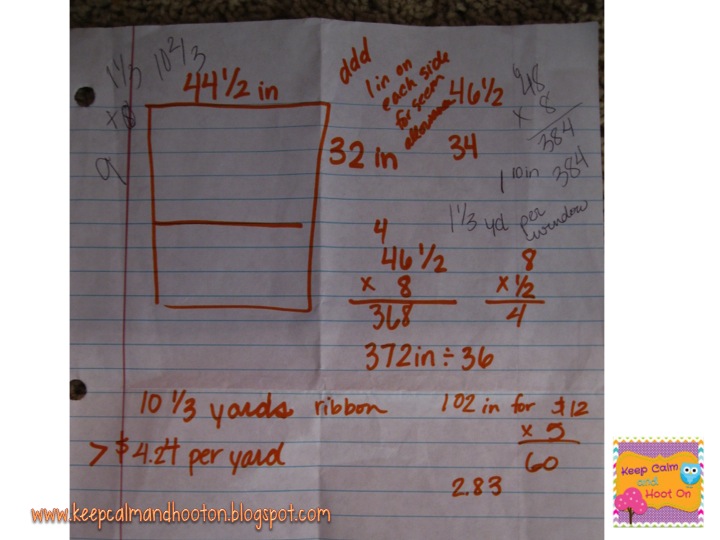 1 1/3
10 2/3
x 8
9
44 1/2 in
32 in
add
1 in on
each side
for seem
allowance
46 1/2
34
48
x 8
384
384
1 1/3 yd per
window
4
46 1/2
x 8
368
8
x 1/2
4
372 in ÷ 36
10 1/3 yards ribbon
> $4.24 per yard
102 in for $12
x 5
60
2.83
Keep Calm
and
Hoot On
www.keepcalmandhooton.blogspot.com